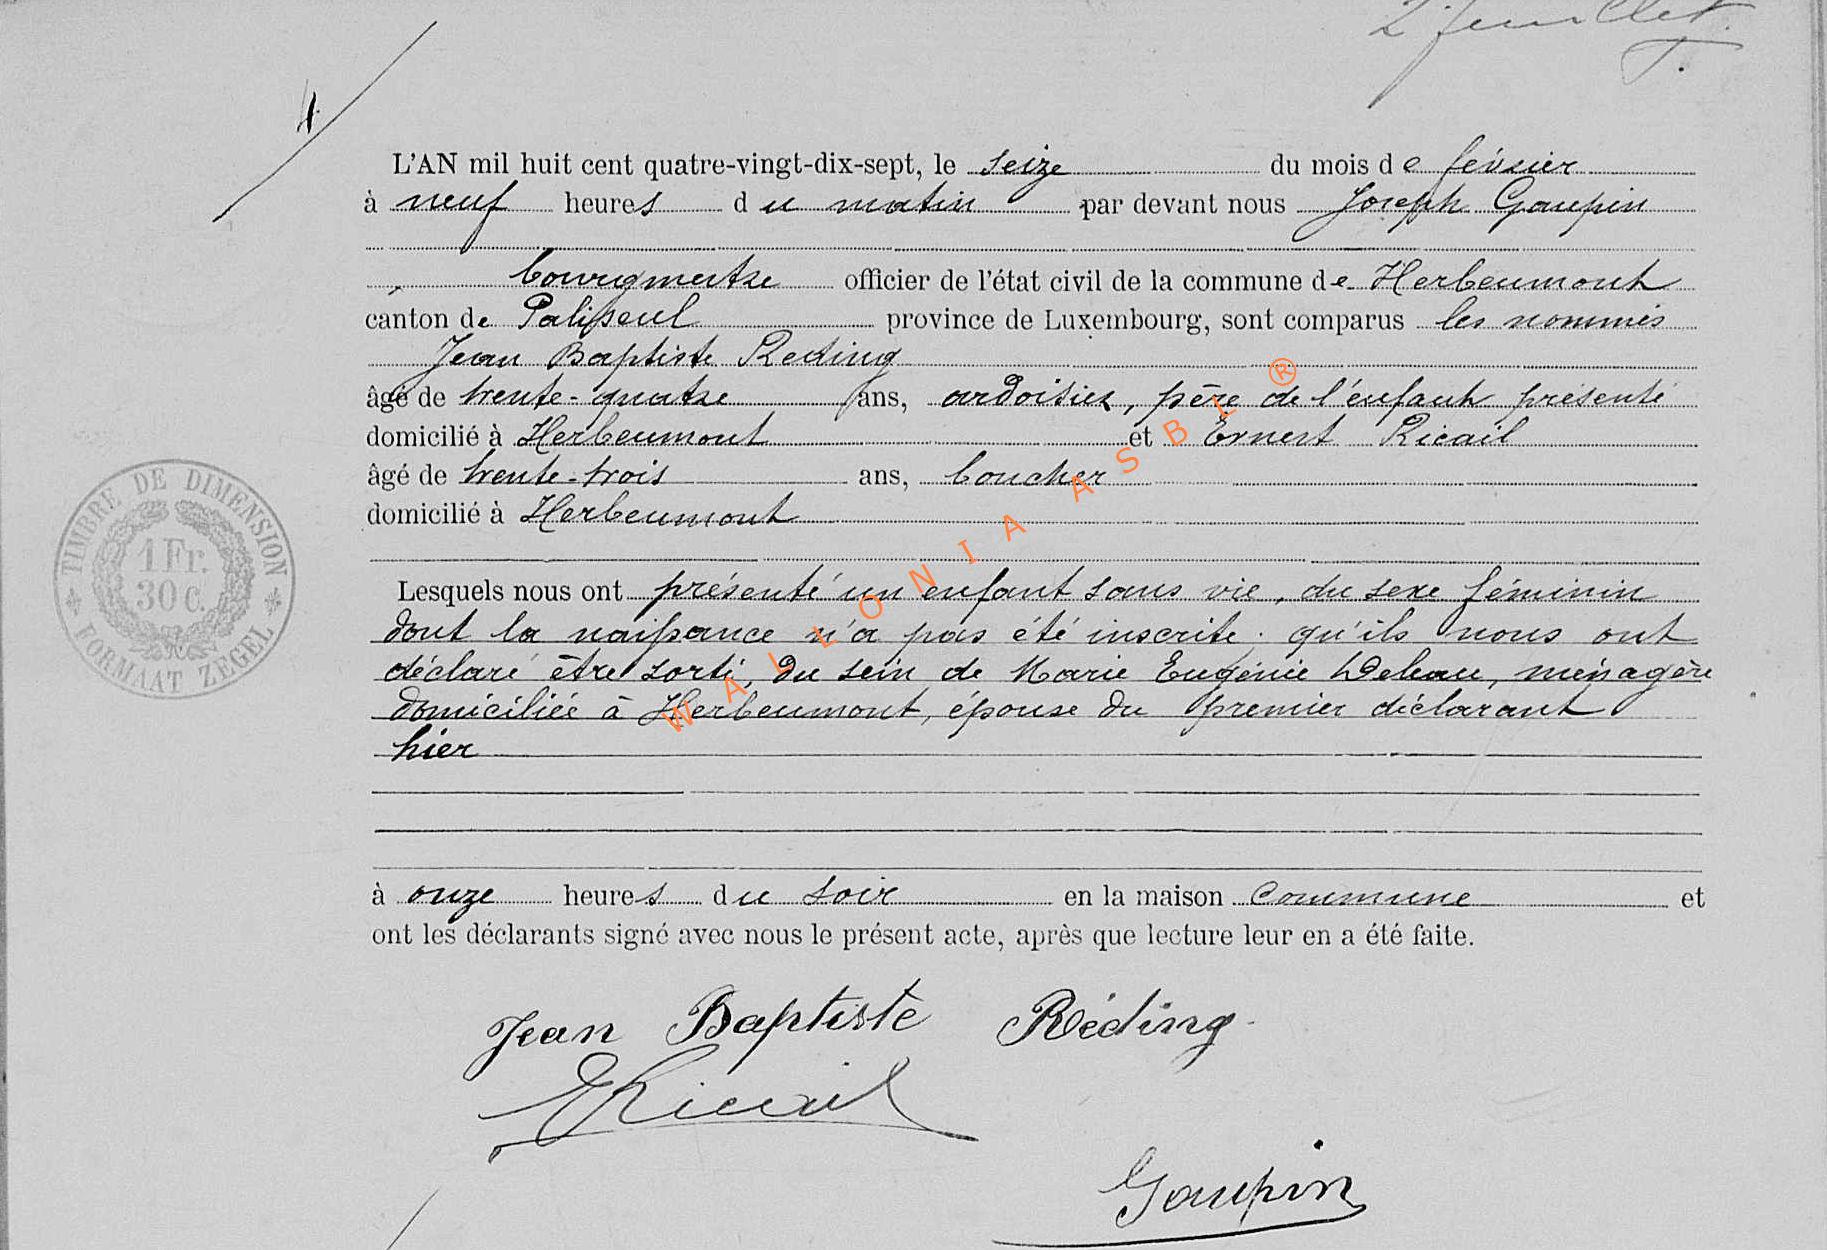 2e feuillet.
4
L'AN mil huit cent quatre-vingt-dix-sept, le seize du mois de février
à neuf heures du matin par devant nous Joseph Gaupin
, bourgmestre officier de l'état civil de la commune de Herbeumont
canton de Paliseul province de Luxembourg, sont comparus les nommés
Jean Baptiste Reding
âgé de trente-quatre ans, ardoisier, père de l'enfant présenté
domicilié à Herbeumont et Ernest Ricail
âgé de trente-trois ans, boucher
domicilié à Herbeumont
Lesquels nous ont présenté un enfant sans vie, du sexe féminin
dont la naissance n'a pas été inscrite. qu'ils nous ont
déclaré être sorti, du sein de Marie Eugénie Deleau, ménagère
domiciliée à Herbeumont, épouse du premier déclarant
hier
à onze heures du soir en la maison commune et
ont les déclarants signé avec nous le présent acte, après que lecture leur en a été faite.
Jean Baptiste Réding
E Ricail
Gaupin
TIMBRE DE DIMENSION
1 Fr.
30 c.
FORMAAT ZEGEL
WALLONIA ASBL ®